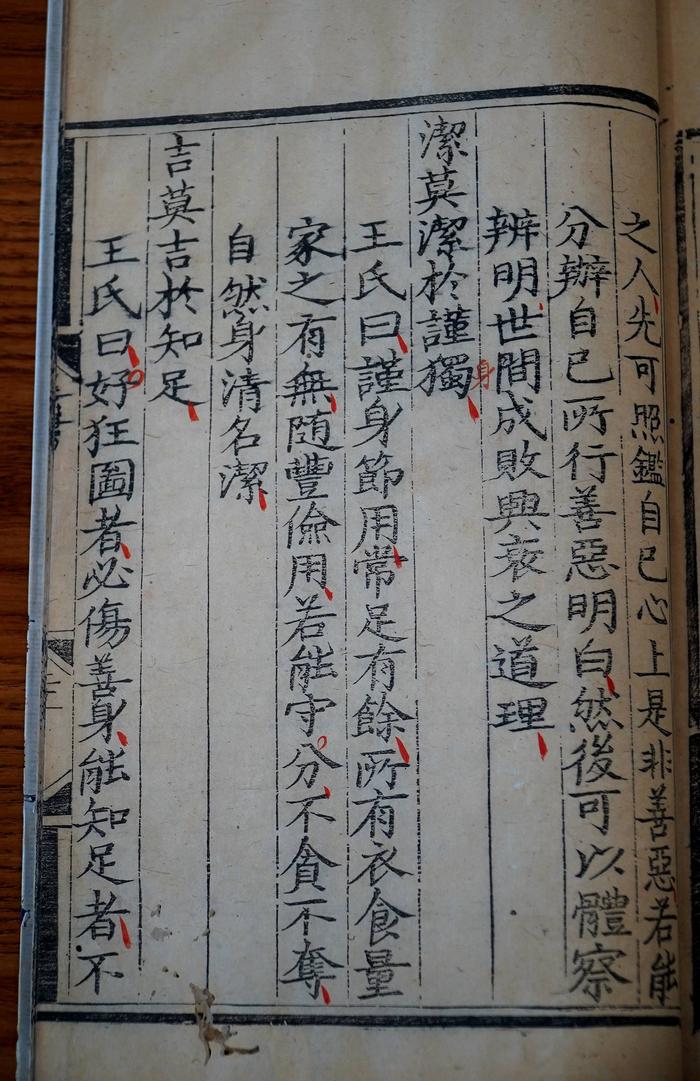 之人先可照鑑自己心上是非善惡若能
分辦自己所行善惡明白然後可以體察
辨明世間成敗興衰之道理
身
潔莫潔於謹獨
王氏曰謹身節用常足有餘所有衣食量
家之有無隨豐儉用若能守分不貪不奪
自然身清名潔
吉莫吉於知足
王氏曰好狂圖者必傷善身能知足者不